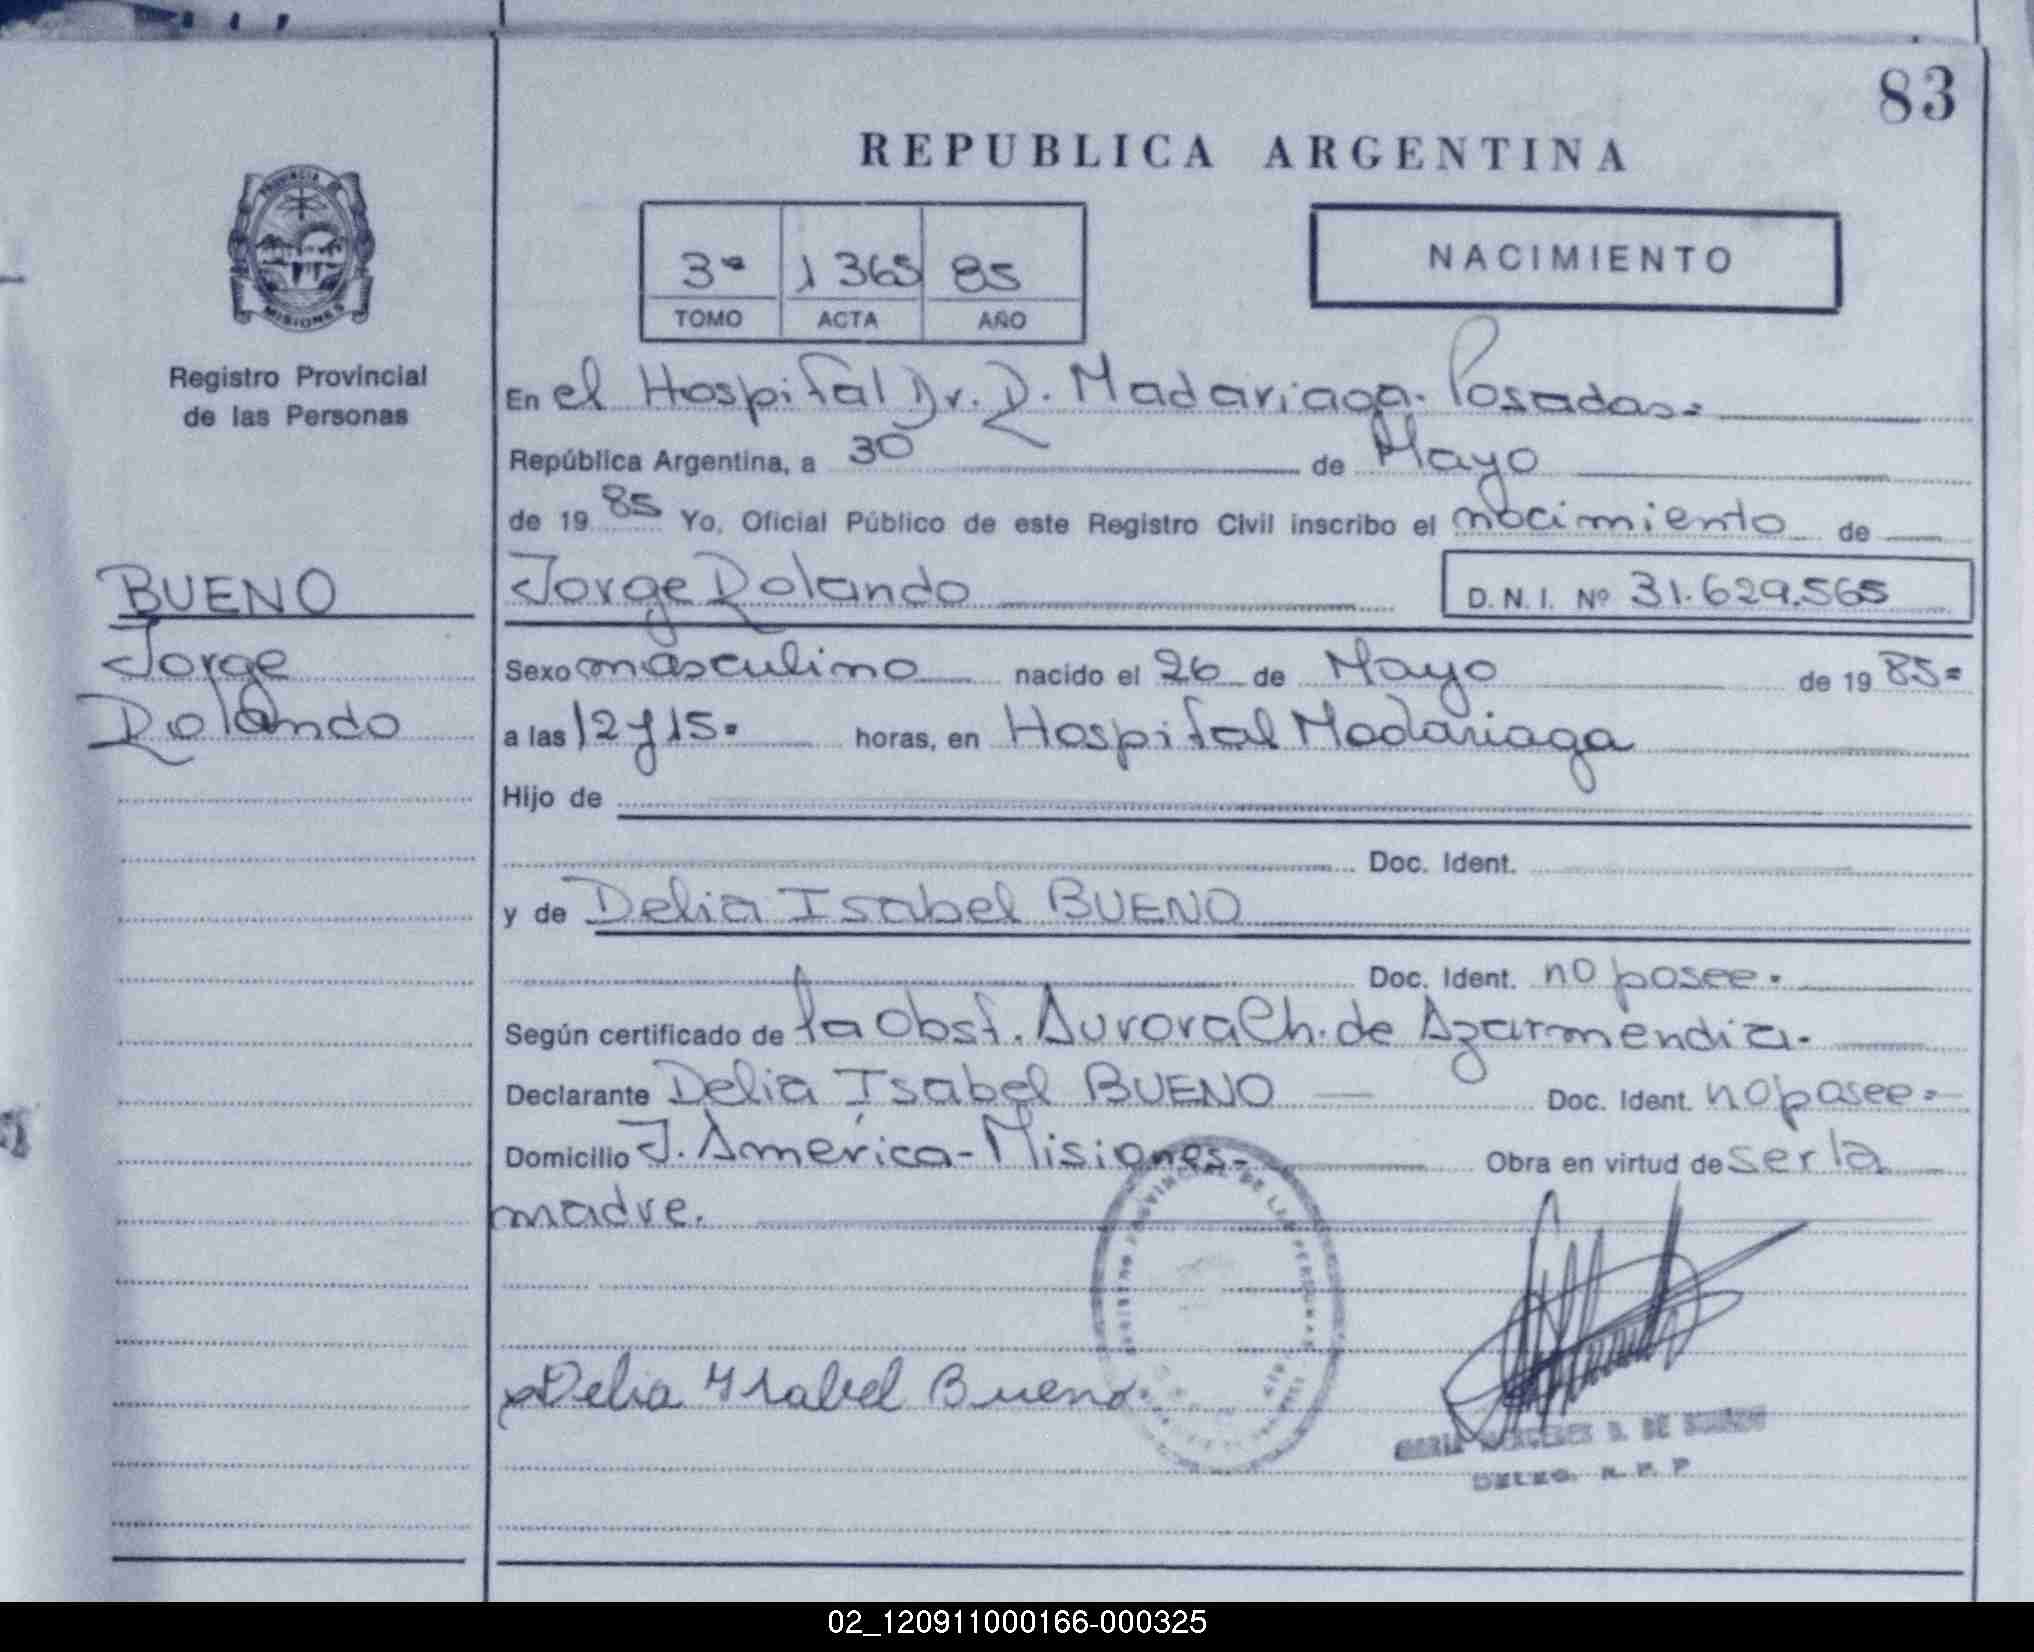 83
REPUBLICA ARGENTINA
PROVINCIA DE
MISIONES
Registro Provincial
de las Personas
3º 1365 85
TOMO ACTA AÑO
NACIMIENTO
En el Hospital Dr. R. Madariaga. Posadas.
República Argentina, a 30 de Mayo
de 19 85 Yo, Oficial Público de este Registro Civil inscribo el nacimiento de
BUENO
Jorge
Rolando
Jorge Rolando D.N.I. Nº 31.629.565
Sexo masculino nacido el 26 de Mayo de 19 85=
a las 12 y 15. horas, en Hospital Madariaga
Hijo de
Doc. Ident.
y de Delia Isabel BUENO
Doc. Ident. no posee.
Según certificado de la Obst. Aurora Ch. de Azarmendia.
Declarante Delia Isabel BUENO Doc. Ident. no posee.
Domicilio J. América - Misiones- Obra en virtud de ser la
madre.
PROVINCIAL DE LAS PERSONAS
Delia Ysabel Bueno
MERCEDES DE
DELEG. R. P. P
02_120911000166-000325